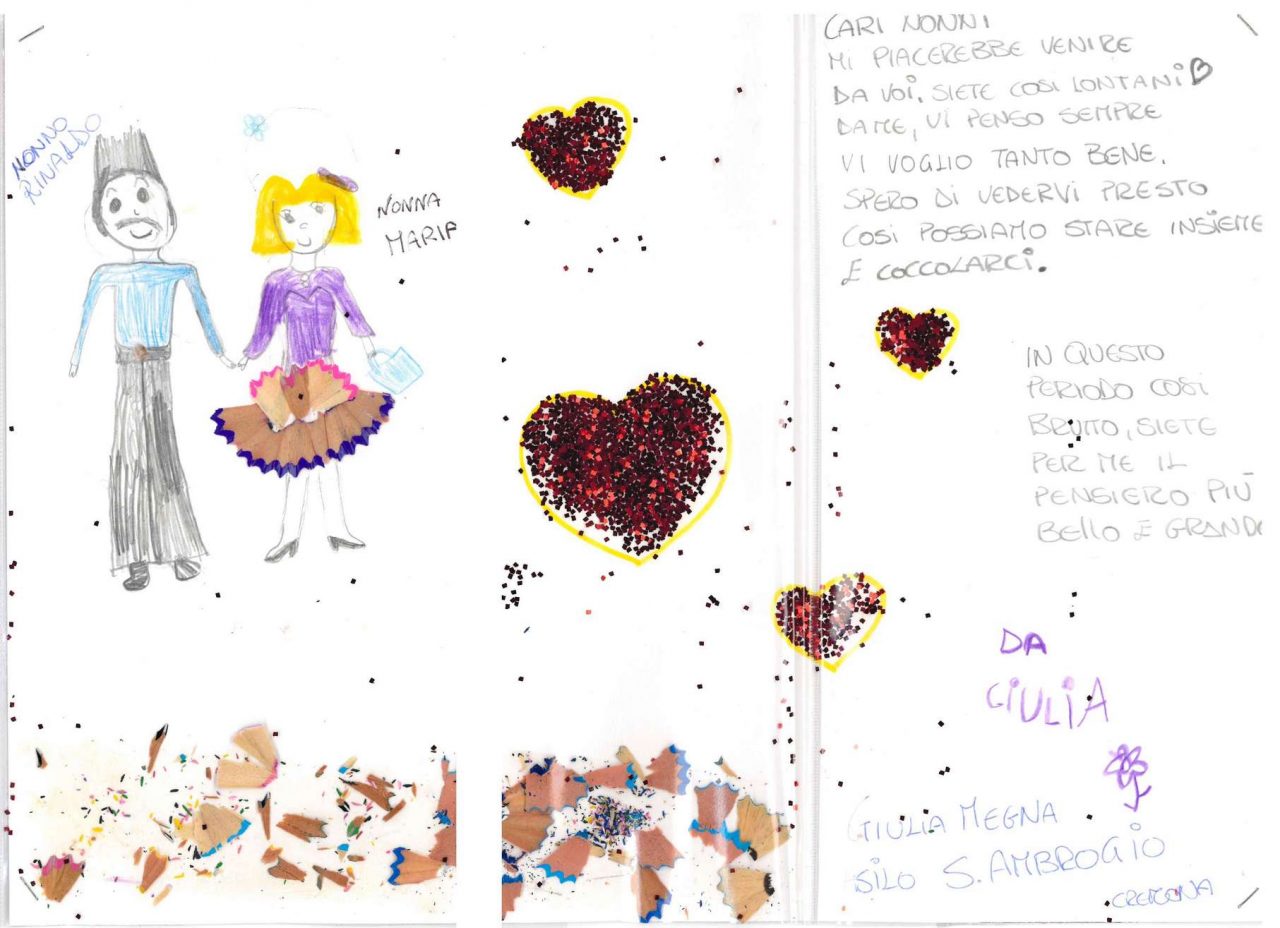 NONNO
RINALDO
NONNA
MARIA
CARI NONNI
MI PIACEREBBE VENIRE
DA VOI. SIETE COSI LONTANI
DA ME, VI PENSO SEMPRE
VI VOGLIO TANTO BENE.
SPERO DI VEDERVI PRESTO
COSI POSSIAMO STARE INSIEME
E COCCOLARCI.
IN QUESTO
PERIODO COSI
BRUTTO, SIETE
PER ME IL
PENSIERO PIÙ
BELLO E GRANDE
DA
GIULIA
GIULIA MEGNA
SILO S. AMBROGIO
CREMONA